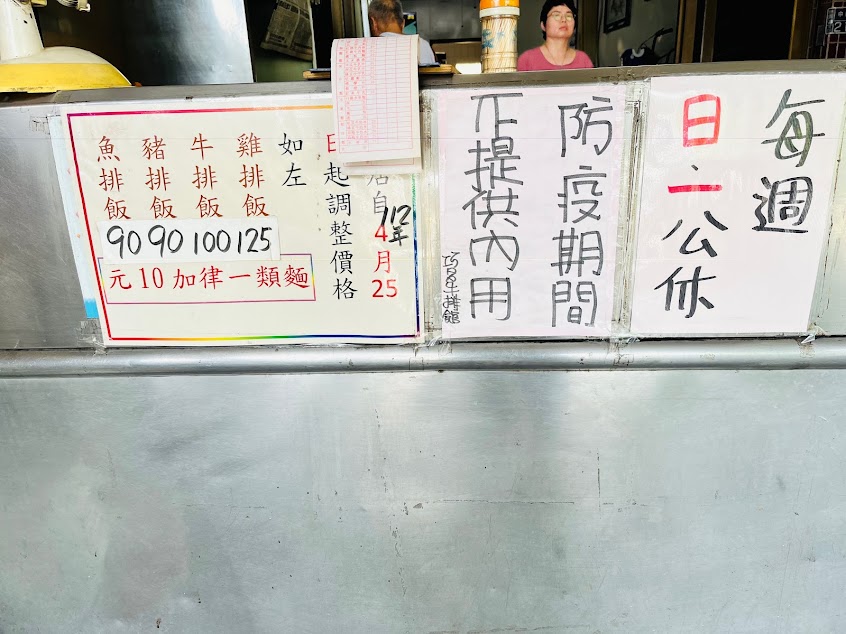 每週
日.一公休
防疫期間
不提供內用
牛排館
店自112年4月25
日起調整價格
如左
雞排飯
牛排飯
豬排飯
魚排飯
90 90 100 125
元10加律一類麵